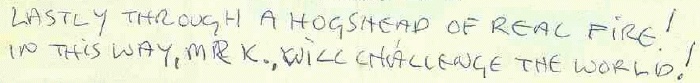 LASTLY THROUGH A HOGSHEAD OF REAL FIRE!
IN THIS WAY, MR K., WILL CHALLENGE THE WORLD!